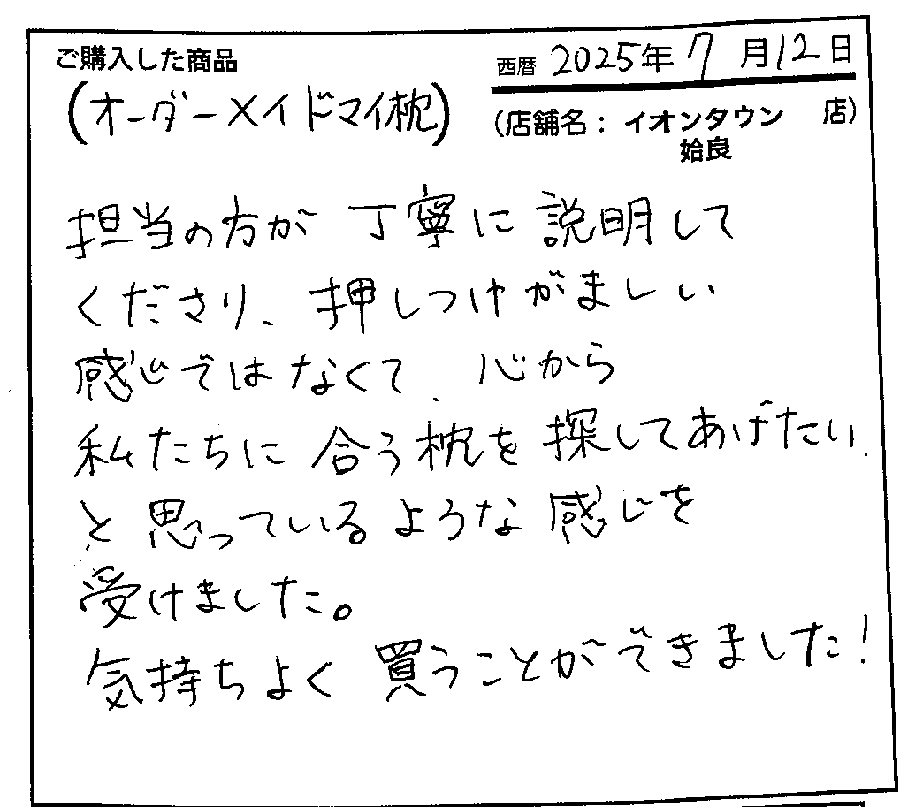 ご購入した商品
西暦 2025年 7月12日
(オーダーメイドマイ枕)
(店舗名：イオンタウン 店)
姶良
担当の方が丁寧に説明して
くださり、押しつけがましい
感じではなくて、心から
私たちに合う枕を探してあげたい
と思っているような感じを
受けました。
気持ちよく買うことができました！